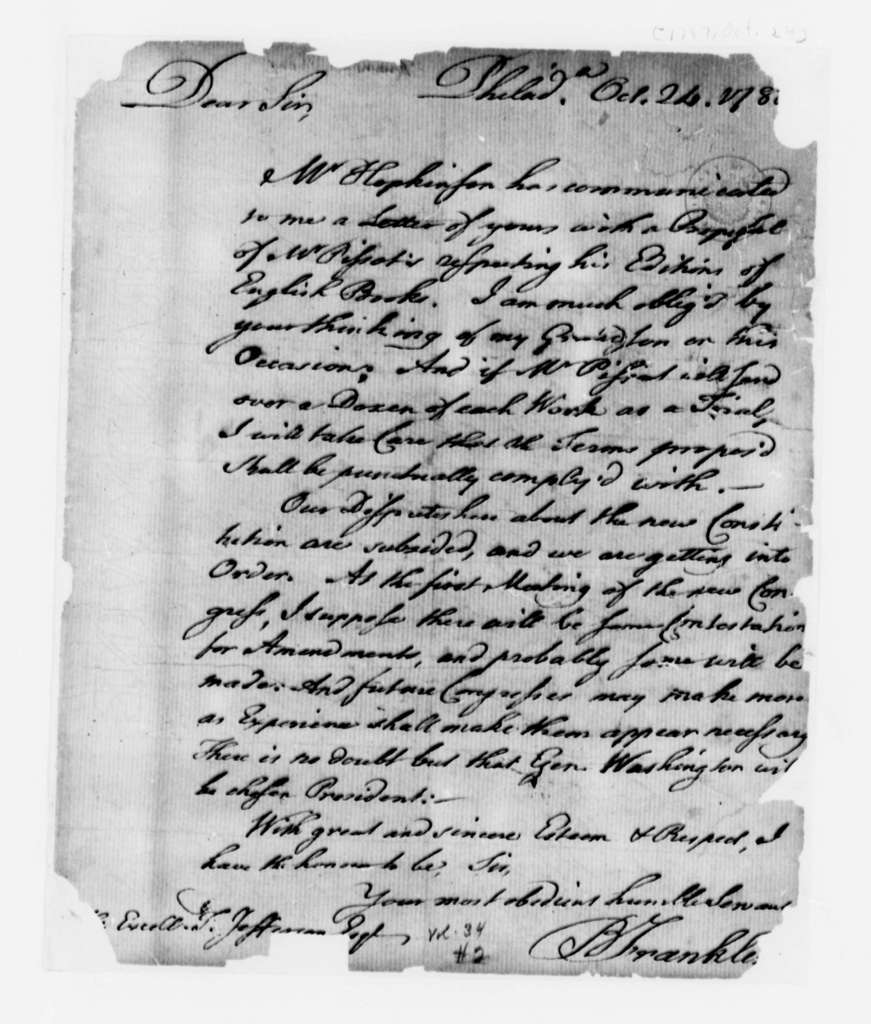 Dear Sir, Philad.a Oct. 24. 178
Mr Hopkinson has communicated
to me a Letter of yours with a Proposal
of Mr Pissot's respecting his Editions of
English Books. I am much oblig'd by
your thinking of my Grandson on this
Occasion; And if Mr Pissot will send
over a Dozen of each Work as a Trial,
I will take Care that the Terms propos'd
shall be punctually comply'd with. —
Our Disputes here about the new Consti-
tution are subsided, and we are getting into
Order. At the first Meeting of the new Con-
gress, I suppose there will be some Contestation
for Amendments, and probably some will be
made: And future Congresses may make more
as Experience shall make them appear necessary
There is no doubt but that Gen. Washington wil
be chosen President: —
With great and sincere Esteem & Respect, I
have the honour to be, Sir,
Your most obedient humble Servant
Excelly T. Jefferson Esqr
Vol. 34
#2
B Franklin